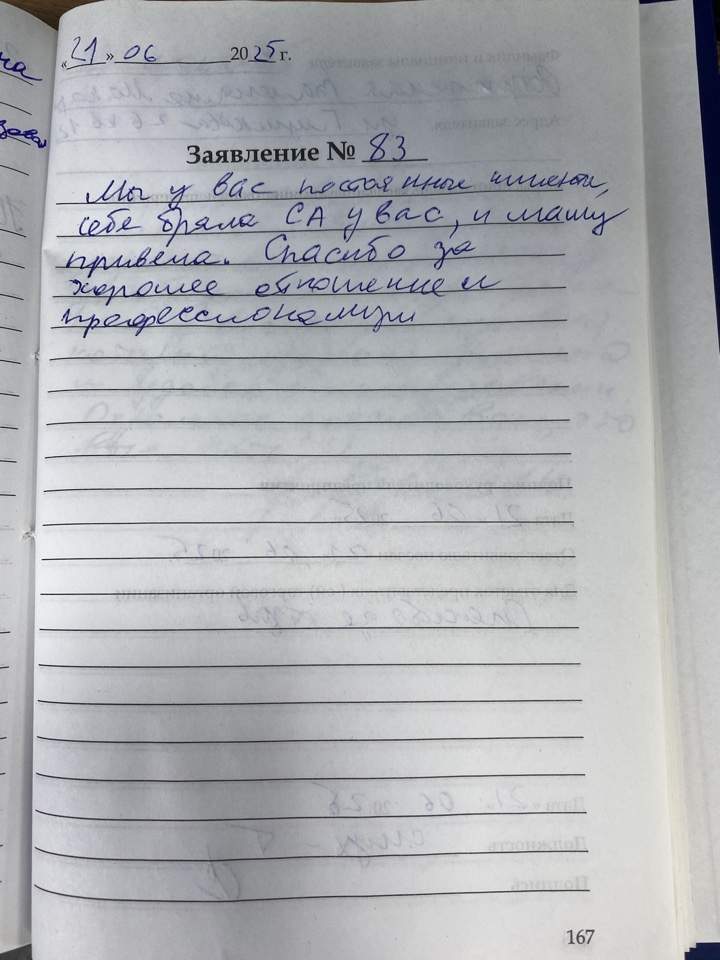 «21» 06 2025 г.
Заявление № 83
Мы у вас постоянные клиенты,
себе брала СА у вас, и машу
привела. Спасибо за
хорошее отношение и
профессионализм
167